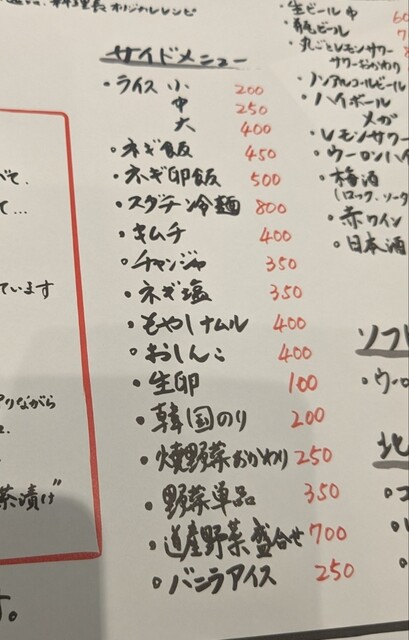 サイドメニュー
・ライス 小 200
中 250
大 400
・ネギ飯 450
・ネギ卵飯 500
・スダチン冷麺 800
・キムチ 400
・チャンジャ 350
・ネギ塩 350
・もやしナムル 400
・おしんこ 400
・生卵 100
・韓国のり 200
・焼野菜おかわり 250
・野菜単品 350
・道産野菜盛合せ 700
・バニラアイス 250
・生ビール 中
・丸ごとレモンサワー
サワーおかわり
・ノンアルコールビール
・ハイボール
メガ
・レモンサワー
・ウーロンハイ
・梅酒
(ロック、ソーダ
・赤ワイン
・日本酒
ソフ
・ウーロ
北
ています
りながら
茶漬け"
す。